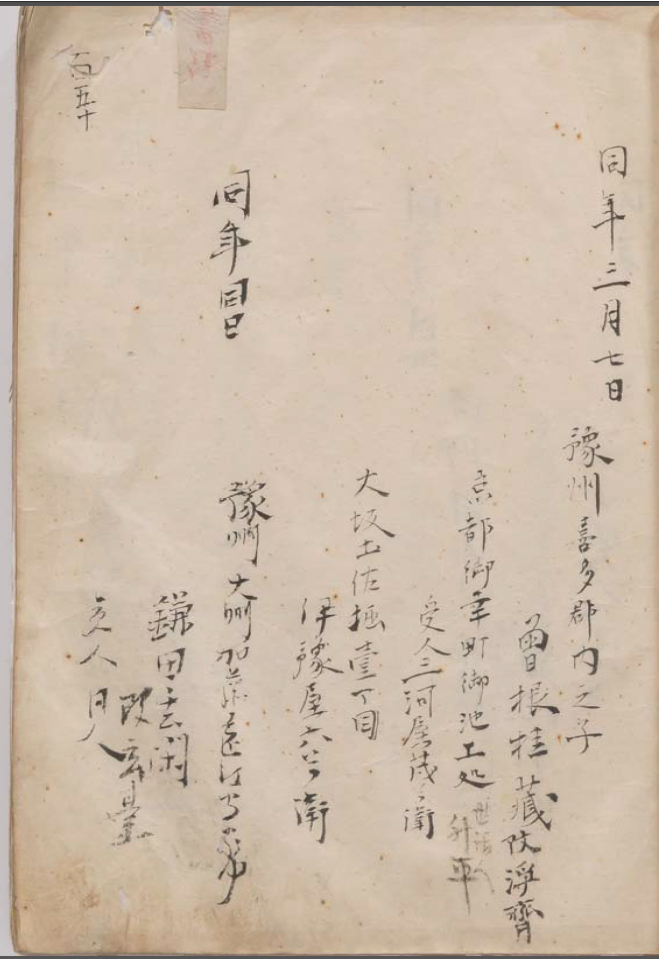 百五十
同年三月七日
豫州喜多郡内之子
曽根桂藏改浄齊
京都御幸町御池上処
世話人
升平
受人三河屋茂兵衛
大坂土佐堀壹丁目
伊豫屋六兵衛
同年同日
豫州大洲加藤遠江守家中
鎌田玄澗
改玄臺
受人同人